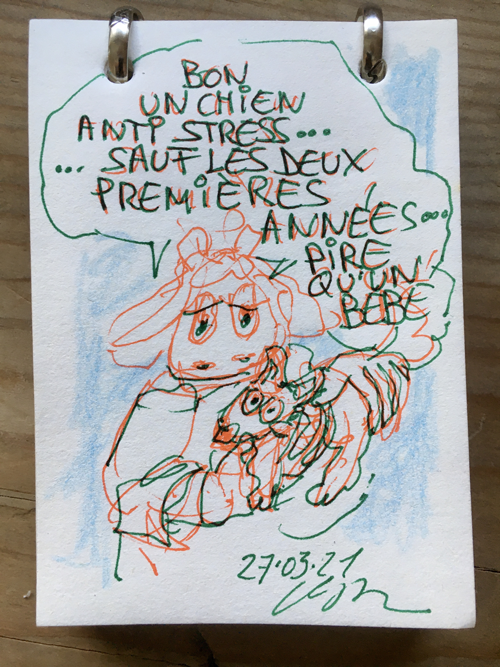 BON
UN CHIEN
ANTI STRESS...
... SAUF LES DEUX
PREMIERES
ANNÉES...
PIRE
QU'UN
BEBE
27.03.21